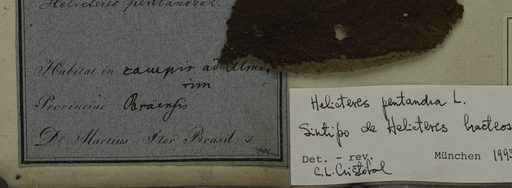 Helicteres pentandra L.
Habitat in campis ad Alme
rim
Provinciae Paraensis
Dr. Martius Iter Brasil
Helicteres pentandra L.
Sintipo de Helicteres bracteos
Det. - rev. München 1993
C.L. Cristóbal